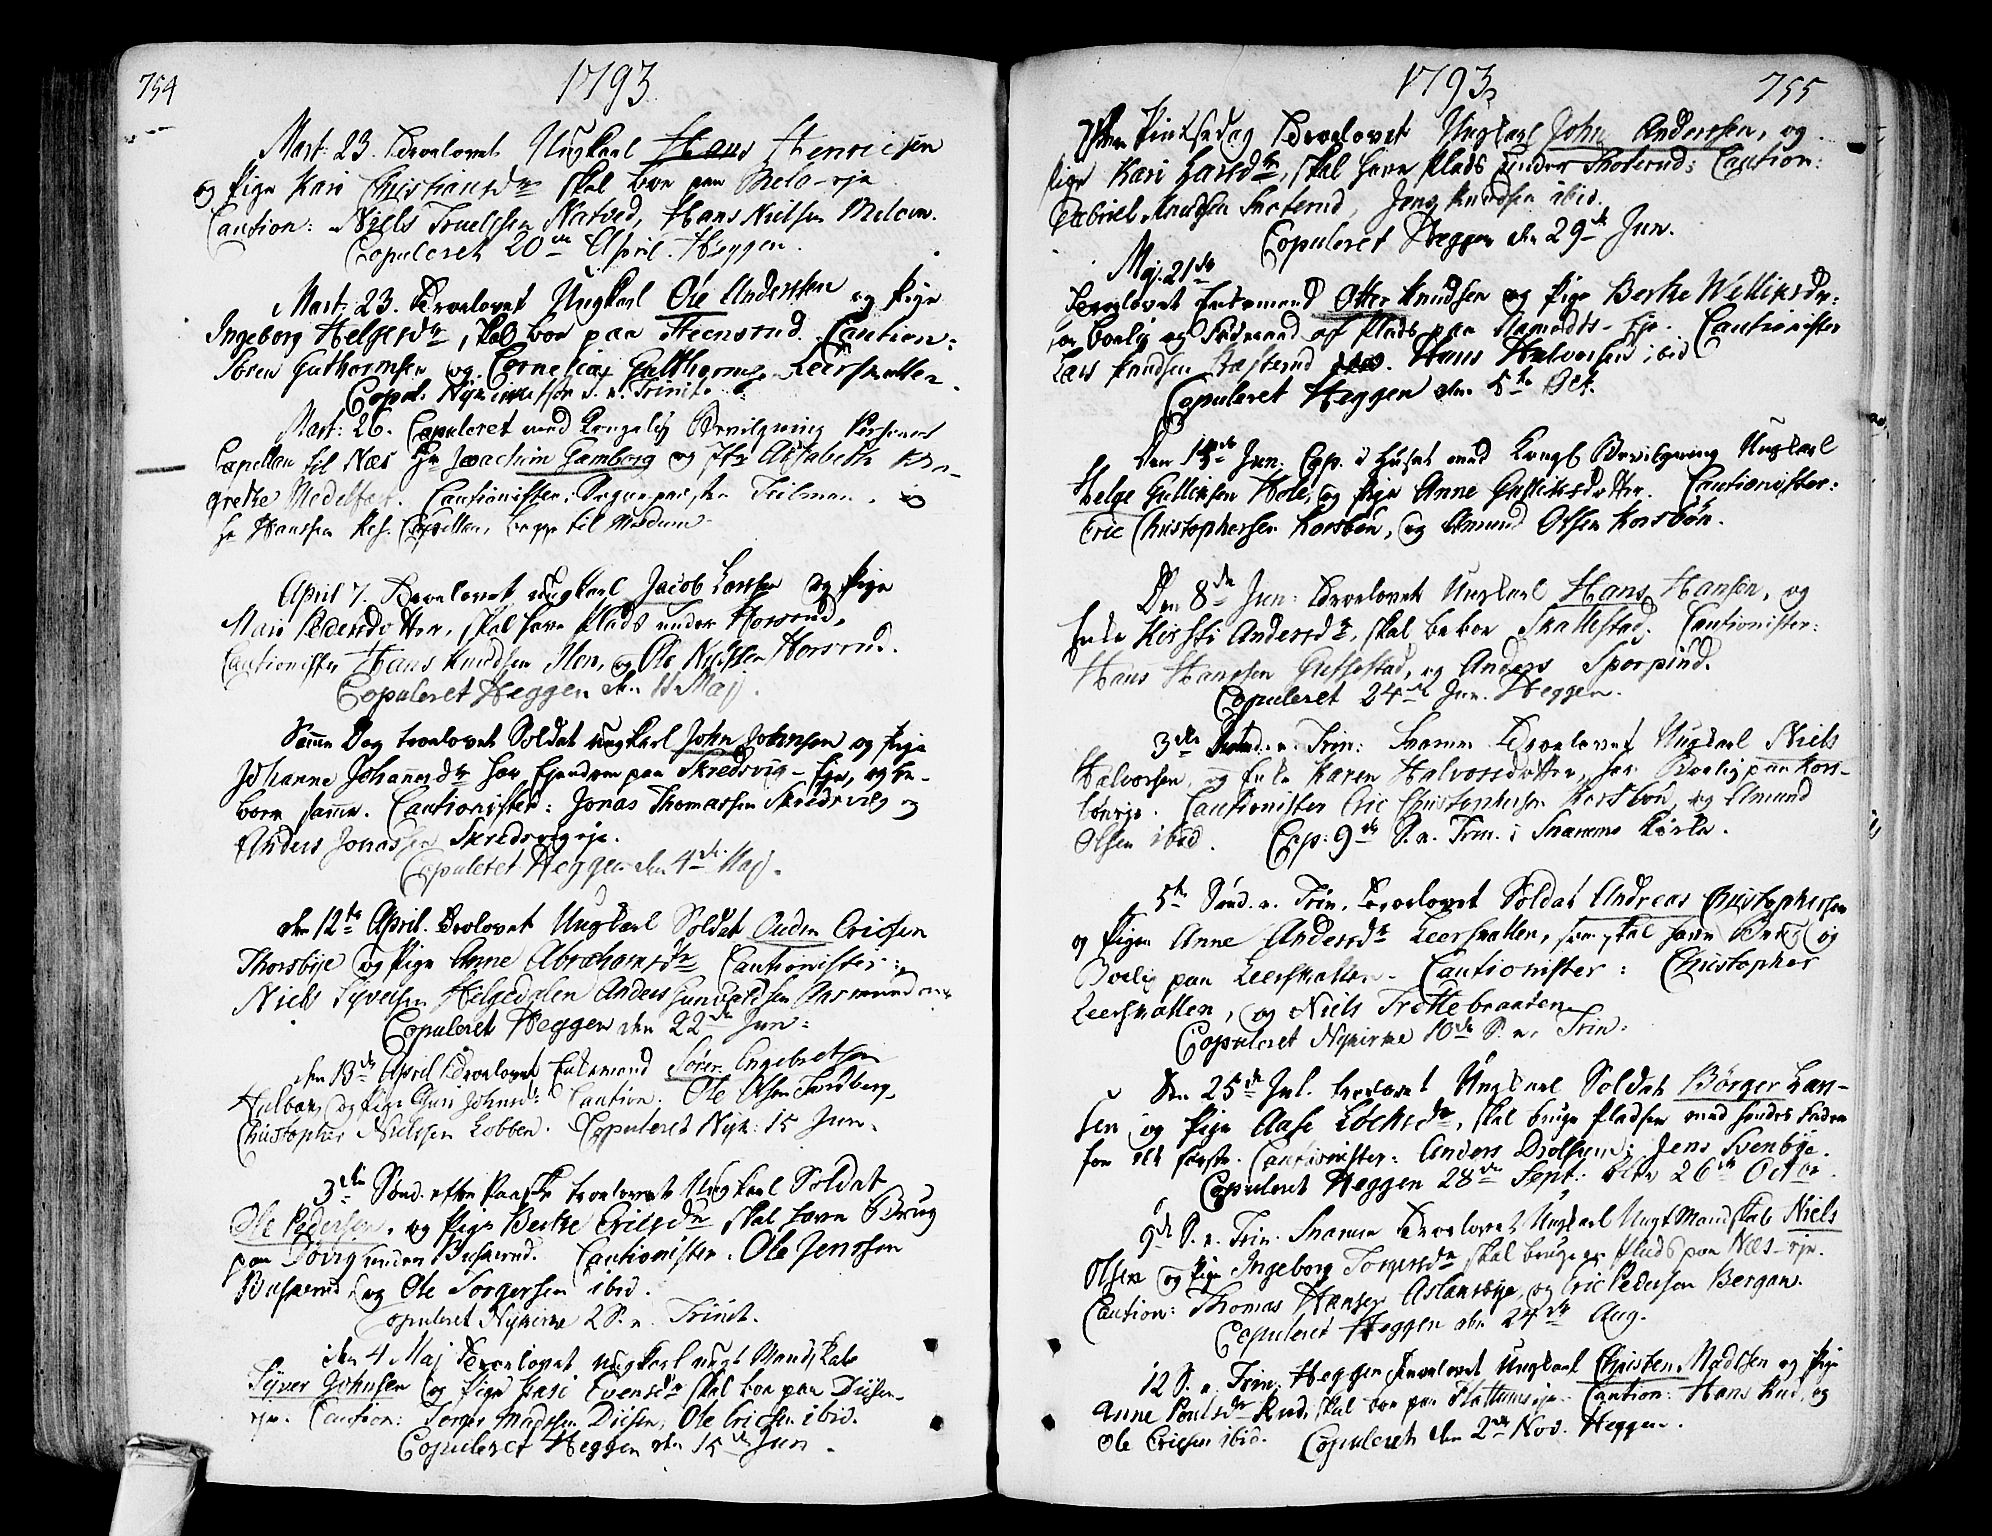 754
1793
Mart: 23. Trolovet Ungkarl Hans Henricsen
og Pige Kari Christiansdr skal boe paa Melo-eje
Caution: Niels Truelssen Natved, Hans Nielsen Meloun.
Copuleret 20de April. Heggen.
Mart: 23. Trolovet Ungkarl Ole Anderssen og Pige
Ingeborg Helgesdr, skal boe paa Steensrud. Caution:
Sören Guthormsen og Cornelius Gutthorms. Leerskallen.
Copul. Nykirke S. n. Trinit.
Mart: 26. Copuleret med Kongelig Bevilgning Personel
Capellan til Næs Hr Joachim Gamborg og Jfr Elisabeth Mar-
grethe Medelfart. Cautionister: Sogne præsten Tilemann
Hr Hanssen Res. Capellan, begge til Modum.
April 7. Trolovet ungkarl Jacob Larssen og Pige
Mari Pedersdotter, skal have Plads under Horsrud.
Cautionister Hans Knudsen Ilen, og Ole Nielssen Horsrud.
Copuleret Heggen den 11 Maj.
Samme Dag trolovet Soldat ungkarl John Johnsen og Pige
Johanne Johannesdr har Ejendom paa Skredsvig-Eje, og be-
boer samme. Cautionister: Jonas Thomassen Skredsvig og
Anders Jonassen Skredsvigeje.
Copuleret Heggen den 4de Maj.
den 12te April. Trolovet Ungkarl Soldat Ouden Ericsen
Thorsbye og Pige Anne Abrahamsdr Cautionister:
Niels Syvelsen Helgedalen Anders Gunvaldsen
Copuleret Heggen den 22de Jun:
den 13de April trolovet Enkemand Sören Engebretsen
og Pige Guri Johnsdr Caution: Ole Olsen Sandberg,
Christopher Nielssen Lobben. Copuleret Nyk: 15 Jun.
3die Sønd. efter Paaske trolovet Ungkarl Soldat
Ole Pedersen, og Pige Berthe Erilsdr skal have Brug
paa under Buskerud. Cautionister: Ole Jenssen
Buskerud, og Ole Torgersen ibid.
Copuleret Nykirke 2 S. n. Trinit.
den 4 Maj trolovet ungkarl ungt Mandskab
Syver Johnsen og Pige Kari Evensdr skal boe paa Diisen-
eje. Caution: Torger Madssen Diisen, Ole Ericsen ibid.
Copuleret Heggen den 15de Jun.
1793
755
Pintsedag trolovet Ungkarl John Anderssen, og
Pige Kari Larsdr, skal have Plads under Skoterud: Caution:
Gabriel Knudsen Skoterud, Jens Knudsen ibid.
Copuleret Heggen den 29de Jun.
Maj. 21de
trolovet Enkemand Otter Knudsen og Pige Berthe Wettlisdr.
Cautionister
Lars Knudsen Hans Halvorsen ibid
Copuleret Heggen den 5te Oct.
Den Jun: Cop. i Huset med Kongl Bevilgning Ungkarl
Helge Gulliksen Hole, og Pige Anne Gulliksdotter. Cautionister:
Eric Christophersen Korsbön, og Amund Olsen Korsbön.
Den 8de Jun: trolovet Ungkarl Hans Hansen, og
Enke Kirsti Andersdr, skal beboe Skallestad. Cautionister:
Hans Hanssen Gussestad, og Anders Sporpind.
Copuleret 24de Jun. Heggen.
3die Sønd. n. Trin: Snarum trolovet Ungkarl Niels
Halvorsen, og Enke Karen Halvorsdotter, har Boelig paa Kors-
böneje. Cautionister Eric Christophersen Korsbön, og Amund
Olsen ibid. Cop: 9de S. n. Trin. i Snarums Kirke.
5te Sönd. n. Trin. trolovet Soldat Andreas Christophersen
og Pigen Anne Andersdr Leerskallen, som skal have Brug og
Boelig paa Leerskallen. Cautionister: Christopher
Leerskallen, og Niels Frøttebraaten
Copuleret Nykirke 10de S. n. Trin:
Den 25de Jul. trolovet Ungkarl Soldat Börger Lar-
sen og Pige Aase Locksdr, skal bruge Pladsen med hendes Fader
for det første. Cautionister: Anders Drolsum, Jens Svenbye.
Copuleret Heggen 28de Sept: 26de Octbr.
9de S. n. Trin. Snarum trolovet Ungkarl Ungt Mandskab Niels
Olsen og Pige Ingeborg Torgersdr skal bruge en Plads paa Næs-eje.
Caution: Thomas Hansen Aslaksbye, og Eric Pedersen Bergan.
Copuleret Heggen den 24de Aug.
12 S. n. Trin. Heggen trolovet Ungkarl Christen Madssen og Pige
Anne Poulsdr Rud, skal boe paa Caution: Hans Rud, og
Ole Ericsen ibid. Copuleret den 2de Nov. Heggen.